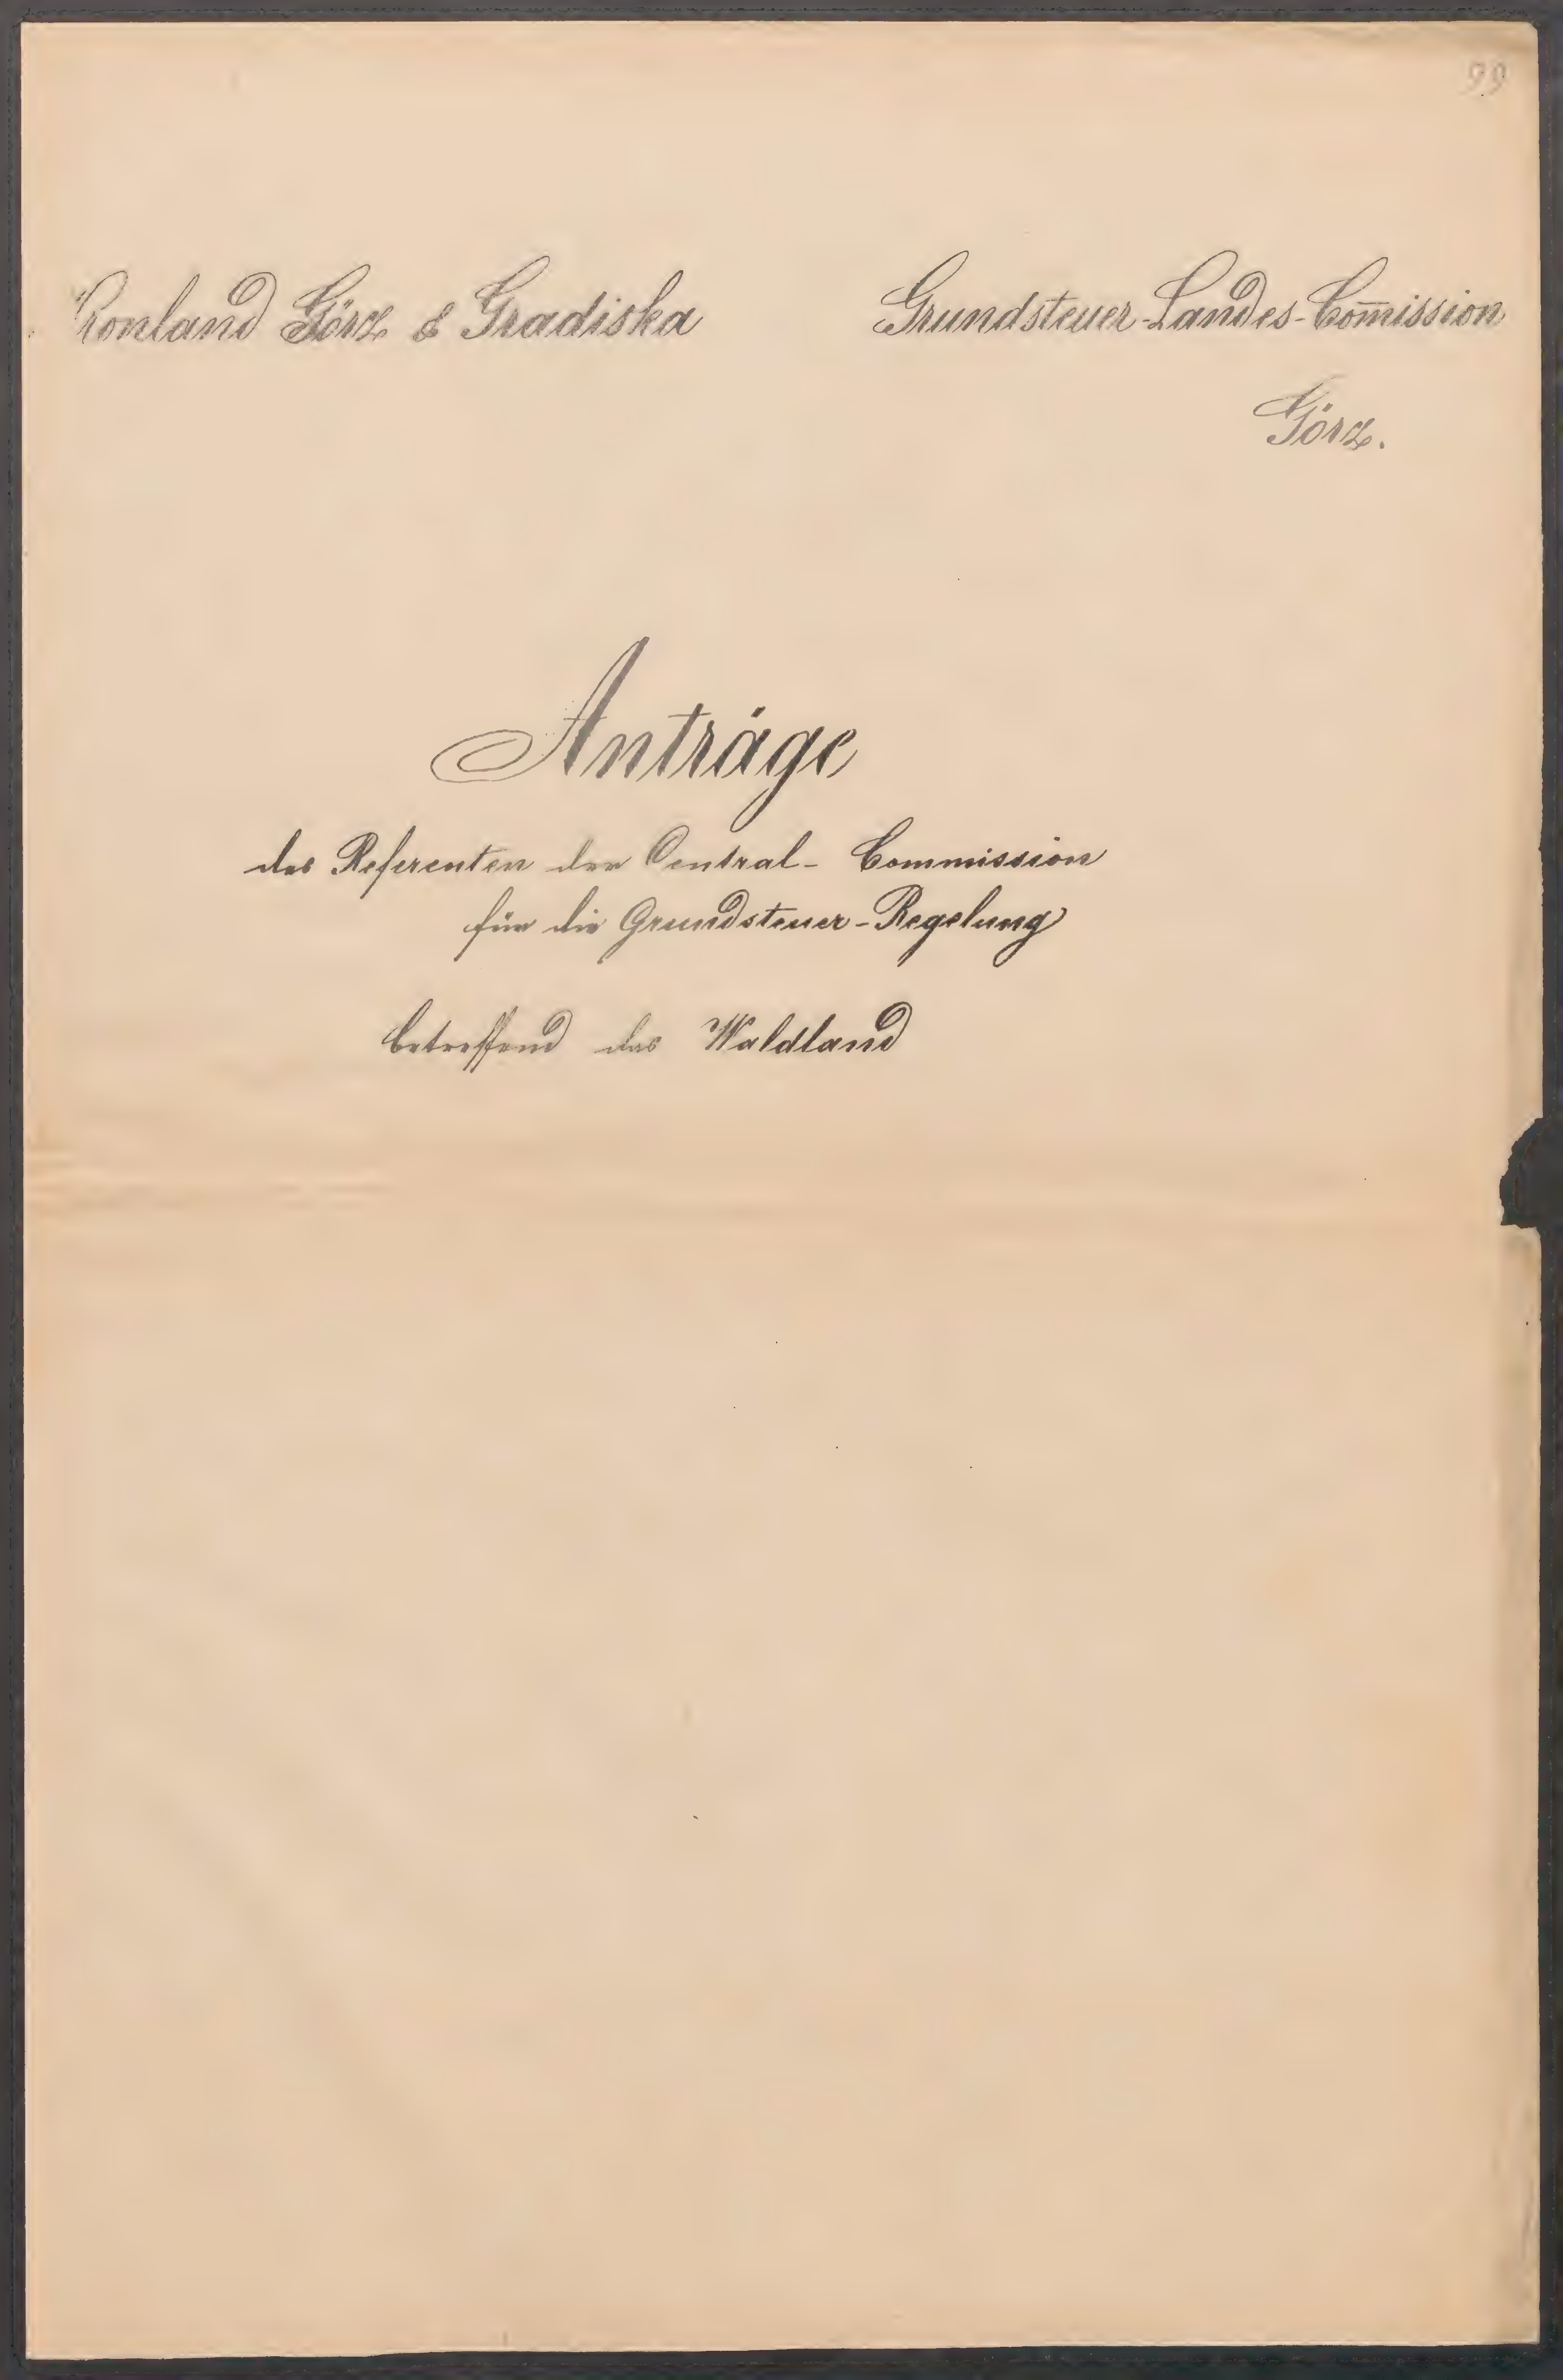 99
Kronland Görz & Gradiska
Grundsteuer-Landes-Com̄ission
Görz.
Anträge
des Referenten der Central-Commission
für die Grundsteuer-Regelung
betreffend das Waldland